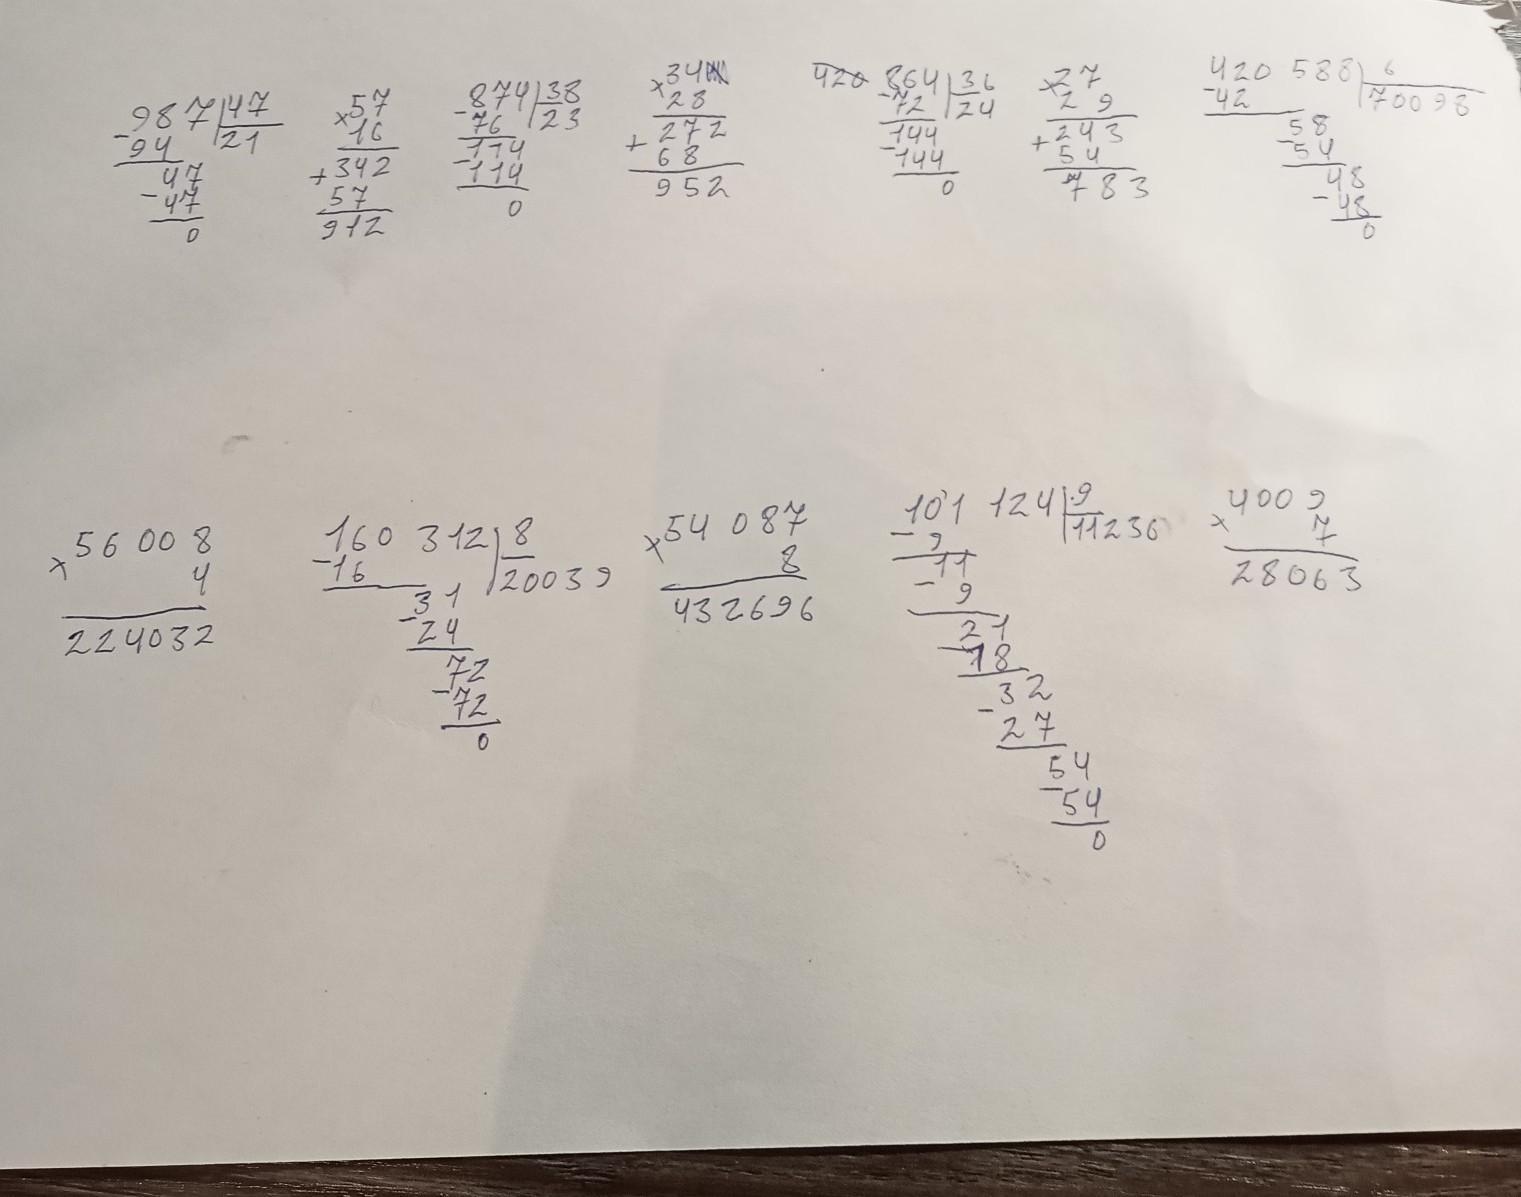 987 47
- 94 21
47
- 47
0
× 57
16
+ 342
57
912
- 874 38
76 23
- 114
114
0
× 34
28
+ 272
68
952
420 864 36
- 72 24
144
- 144
0
× 27
2 9
+ 243
54
783
420 588 6
- 42 70098
58
- 54
48
- 48
0
× 56 008
4
224032
160 312 8
- 16 20039
31
- 24
72
- 72
0
× 54 087
8
432696
101 124 9
- 9 11236
11
- 9
21
- 18
32
- 27
54
- 54
0
× 4009
7
28063